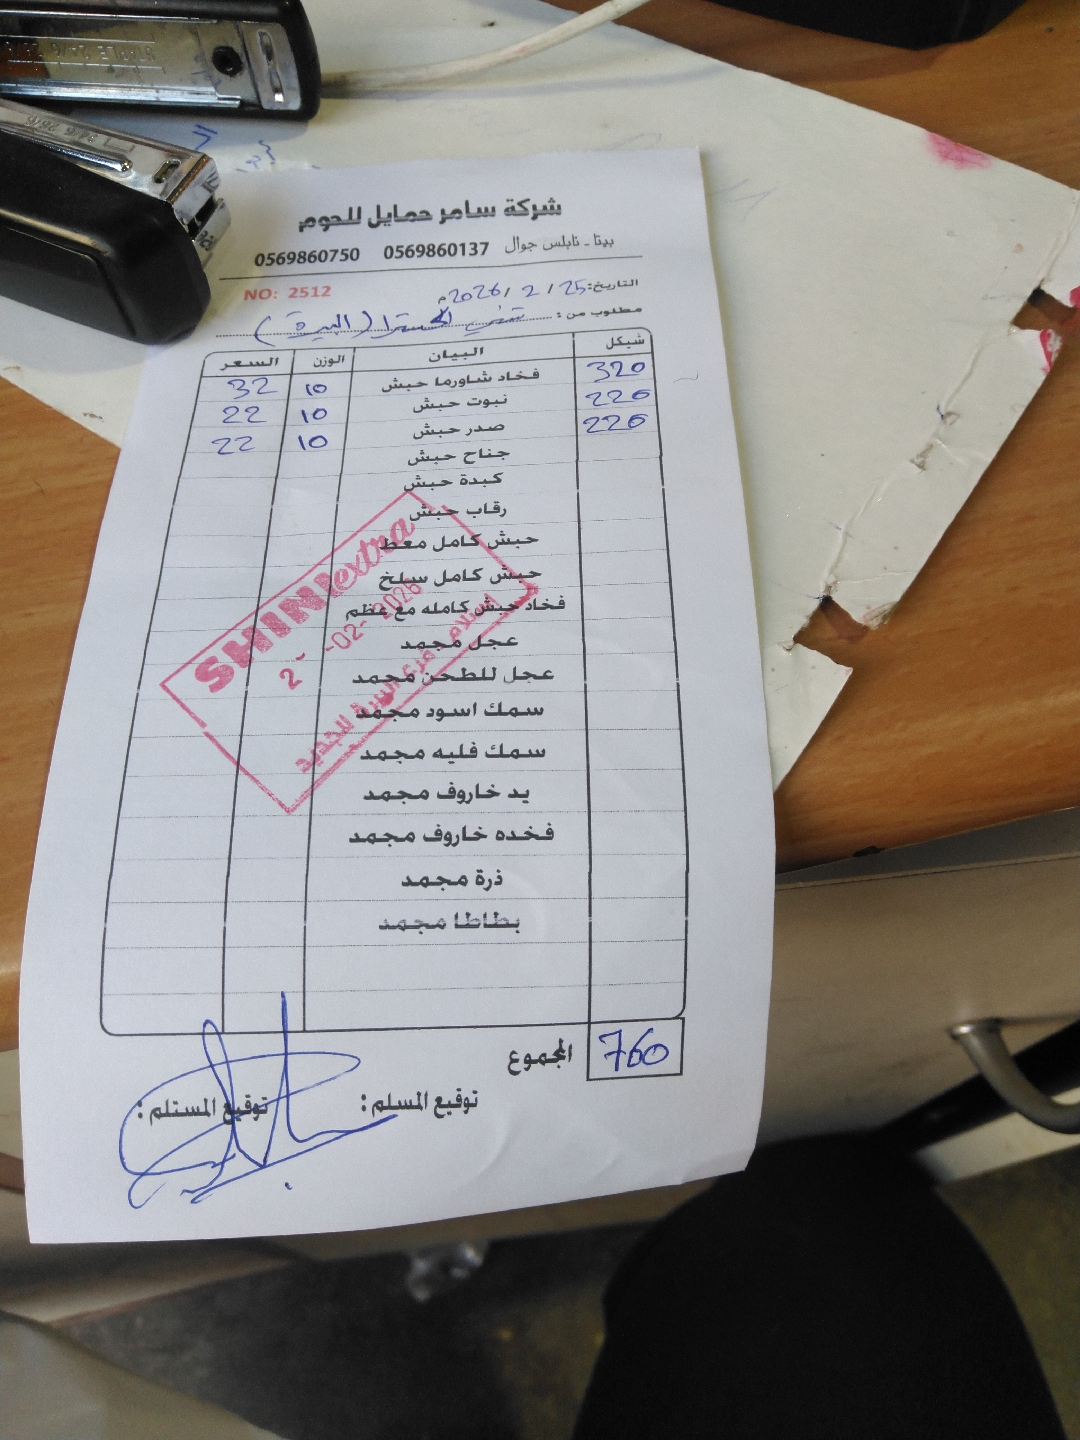 شركة سامر حمايل للحوم
بيتا - نابلس جوال 0569860137 0569860750
التاريخ: 25 / 2 / 2026م
NO: 2512
مطلوب من : (البيرة)
شيكل البيان الوزن السعر
320 فخاد شاورما حبش 10 32
220 نبوت حبش 10 22
220 صدر حبش 10 22
جناح حبش
كبدة حبش
رقاب حبش
حبش كامل معط
حبش كامل سلخ
فخاد حبش كامله مع عظم
عجل مجمد
عجل للطحن مجمد
سمك اسود مجمد
سمك فليه مجمد
يد خاروف مجمد
فخده خاروف مجمد
ذرة مجمد
بطاطا مجمد
المجموع 760
توقيع المسلم : توقيع المستلم :
SHINI extra
-02-2026